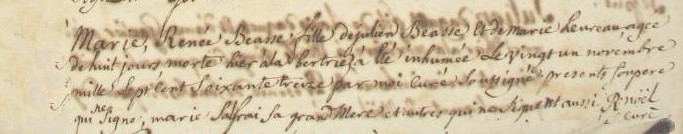 Marie, Renée Beasse fille de julien Beasse Et de marie heureau agee
de huit jours morte hier a la bertrie, a été inhumée Le vingt un novembre
mille Sept cent Soixante treize par moi Curé Soussigné presents Son pere
qui ne Signe, marie Sa grand Mere et autres qui ne Signent aussi. R. noël
Curé